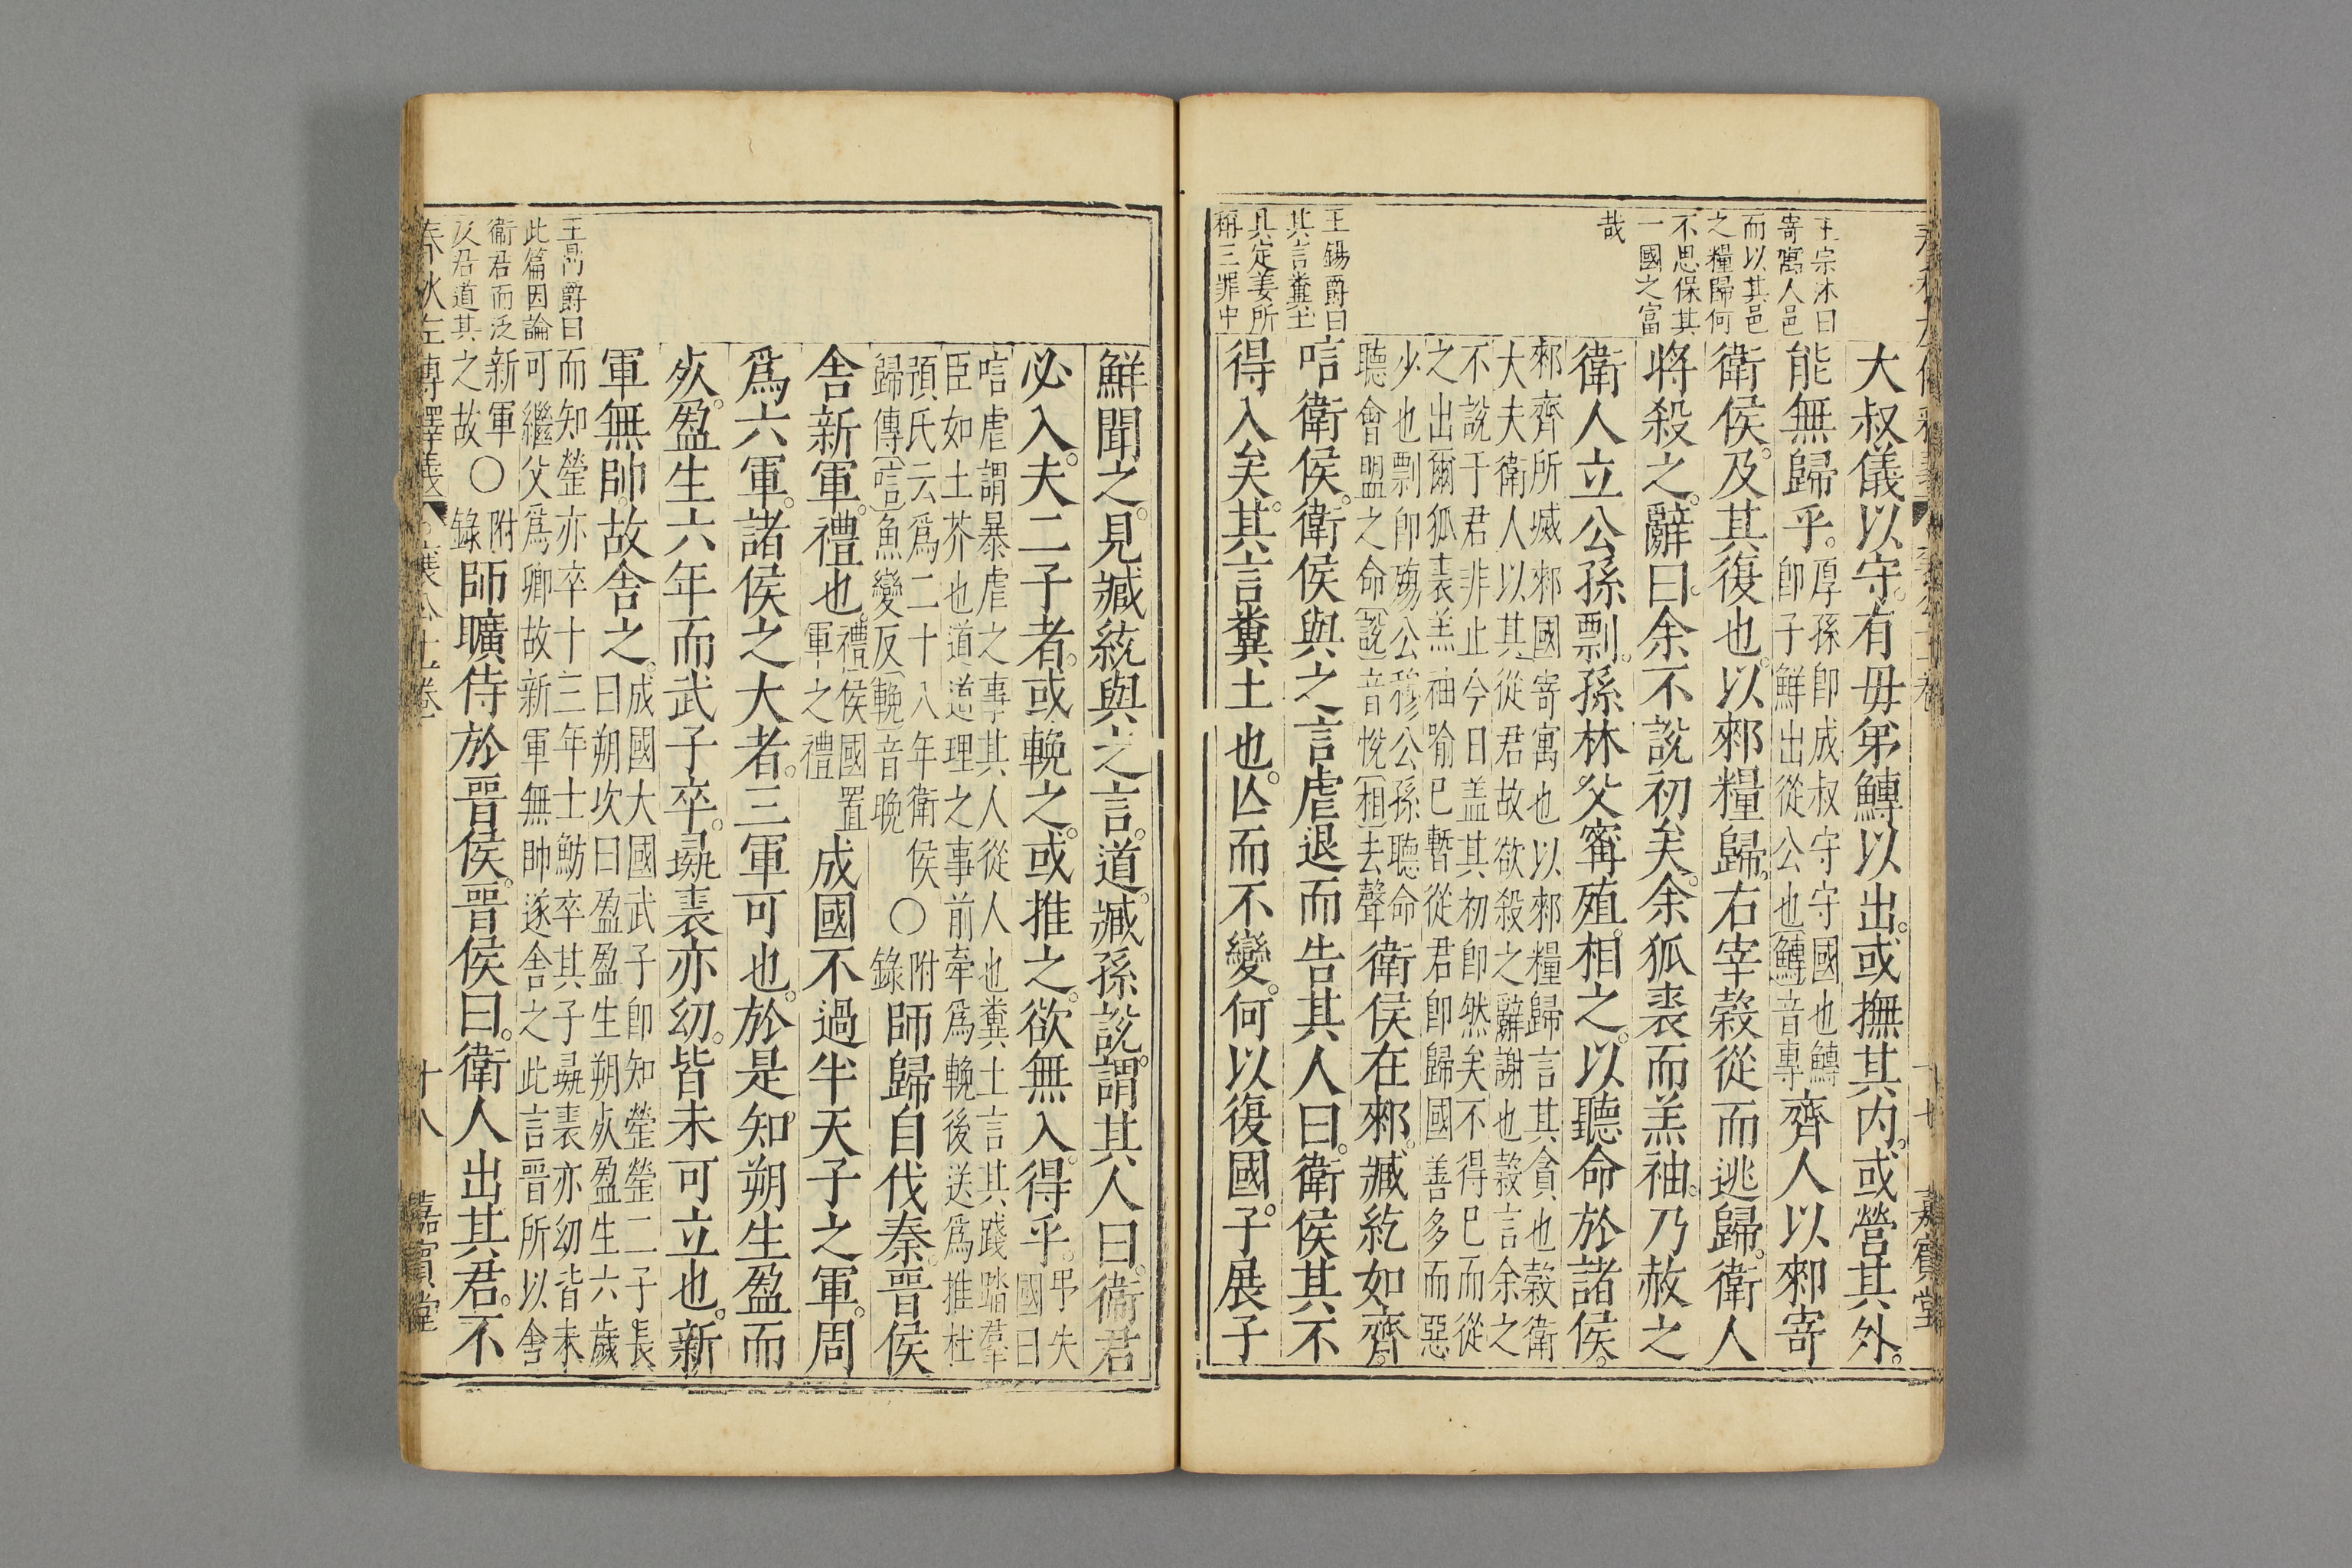 王宗沐曰
寄寓人邑
而以其邑
之糧歸何
不思保其
一國之富
哉
王錫爵曰
其言糞土
具定姜所
稱三罪中
大叔儀以守。有毋弟鱄以出。或撫其内。或營其外。
能無歸乎。厚孫卽成叔守守國也鱄卽子鮮出從公也〔鱄〕音專齊人以郲寄
衛侯。及其復也。以郲糧歸。右宰穀從而逃歸。衛人
將殺之。辭曰。余不說初矣。余狐裘而羔袖。乃赦之
郲齊所烕郲國寄寓也以郲糧歸言其貪也穀衛
大夫衛人以其從君故欲殺之辭謝也穀言余之
不說于君非止今日盖其初卽然矣不得巳而從
之出爾狐裘羔袖喻巳暫從君卽歸國善多而惡
少也
衛人立公孫剽。孫林父甯殖。相之。以聽命於諸侯。
剽卽殤公穆公孫聽命
聽會盟之命〔說〕音悅〔相〕去聲衛侯在郲。臧紇如齊。
唁衛侯。衛侯與之言虐退而告其人曰。衛侯其不
得入矣。其言糞土也。亾而不變。何以復國。子展子
嘉賓堂
王錫爵曰
此篇因論
衞君而泛
及君道其
鮮聞之。見臧紇與之言。道。臧孫說。謂其人曰。衞君
必入。夫二子者。或輓之。或推之。欲無入。得乎。弔失國曰
唁虐謂暴虐之事其人從人也糞土言其踐踏羣
臣如土芥也道道理之事前牽爲輓後送爲推杜
預氏云爲二十八年衛侯
歸傳〔唁〕魚變反〔輓〕音晚〇附錄師歸自伐秦。晉侯
舍新軍。禮也。禮侯國置軍之禮成國不過半天子之軍。周
爲六軍。諸侯之大者。三軍可也。於是知朔生盈而
㱙。盈生六年而武子卒。彘裘亦幼。皆未可立也。新
軍無帥。故舍之。成國大國武子卽知罃罃二子長曰朔次曰盈盈生朔㱙盈生六歲
而知罃亦卒十三年士魴卒其子彘裘亦幼皆未
可繼父爲卿故新軍無帥遂舍之此言晉所以舍
新軍之故〇附錄師曠侍於晉侯。晉侯曰。衛人出其君。不
春秋左傳釋義
十八
嘉賓堂